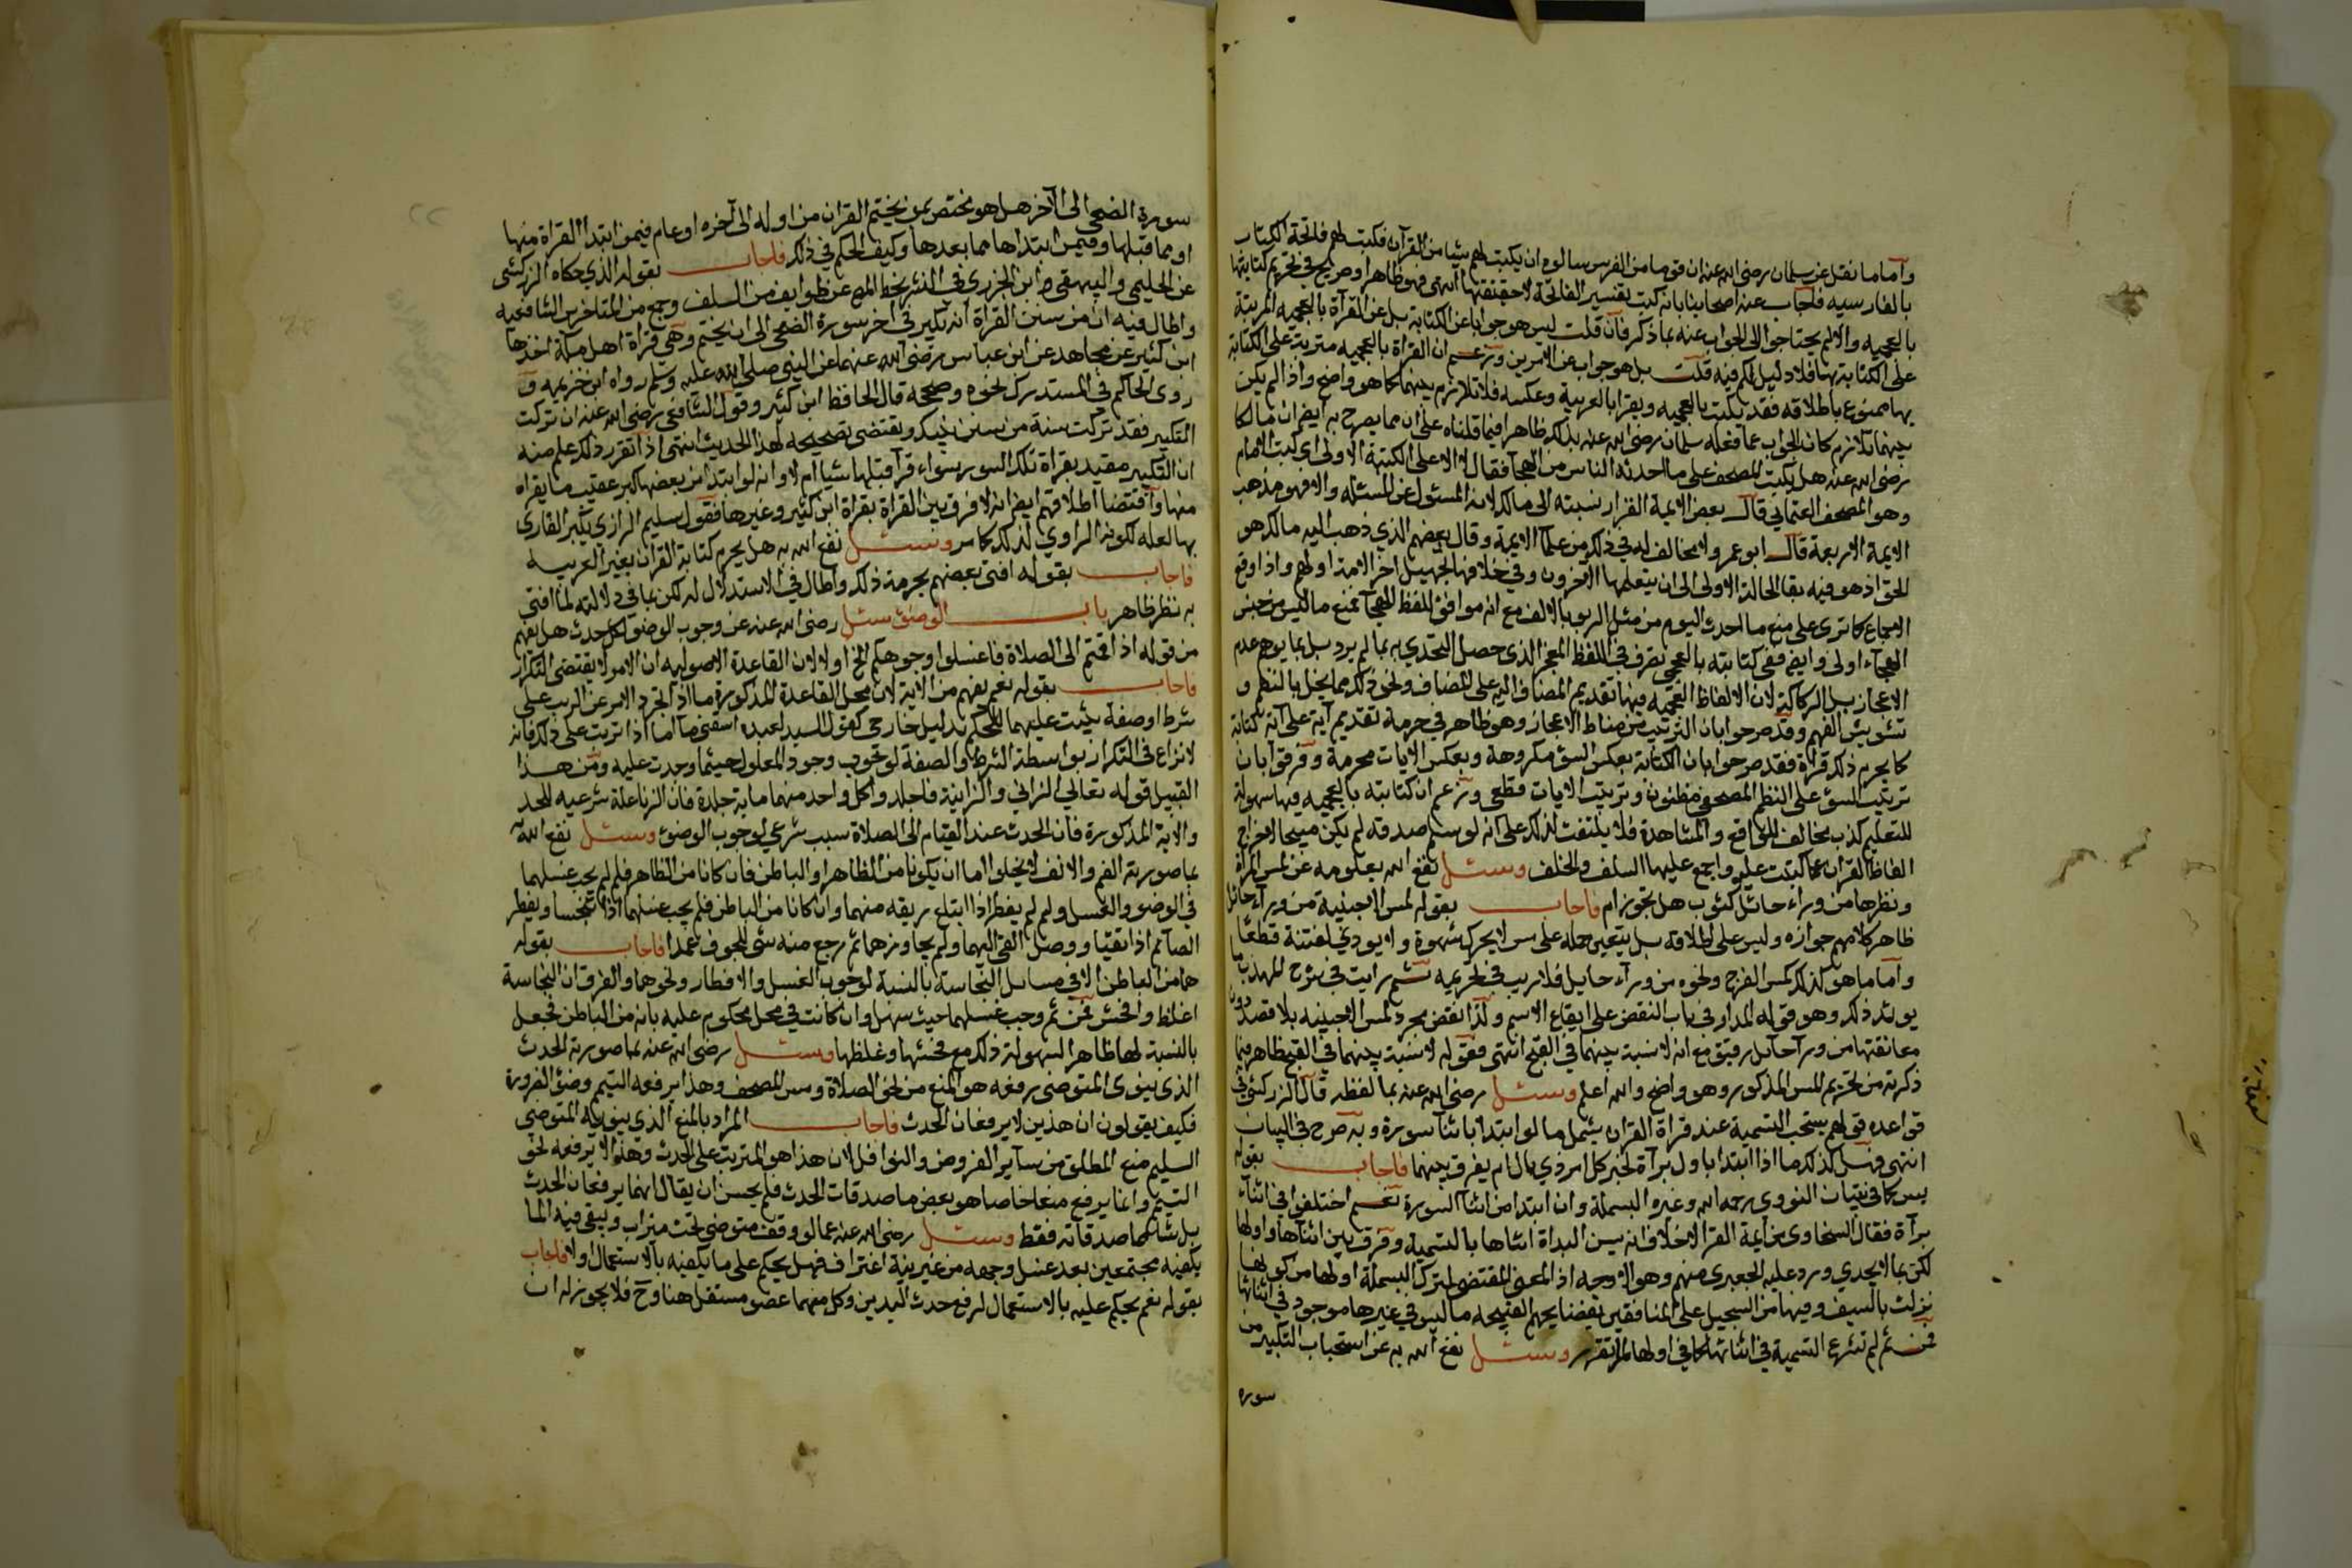 وأما ما نقل عن سلمان رضي الله عنه ان قوما من الفرس سالوه ان يكتب لهم شيا من القرآن فكتب لهم فاتحة الكتاب
بالفارسيه فاجاب عنه اصحابنا بانه كتب تفسير الفاتحة لا حقيقتها انتهى فهو ظاهر او صريح في تحريم كتابتها
بالعجميه والا لم يحتاجوا الى الجواب عنه بما ذكر فان قلت ليس هو جوابا عن الكتابة بل عن القرآة بالعجميه المرتبة
على الكتابة بها فلا دليل لكم فيه قلت بل هو جواب عن الامرين وزعم ان القراة بالعجميه مترتبة على الكتابة
بها ممنوع باطلاقه فقد يكتب بالعجميه ويقرا بالعربية وعكسه فلا تلازم بينهما كما هو واضح واذا لم يكن
بينهما تلازم كان الجواب عما فعله سلمان رضي الله عنه بذلك ظاهرا فيما قلناه على ان مما يصرح به ايضا ان مالكا
رضي الله عنه هل يكتب المصحف على ما احدثه الناس من الهجآ فقال لا الا على الكتبة الاولى اي كتب الامام
وهو المصحف العثماني قال بعض الايمة القرا ونسبته الى مالك لانه المسئول عن المسئله والا فهو مذهب
الايمة الاربعة قال ابو عمرو لا مخالف له في ذلك من علمآ الايمة وقال بعضهم الذي ذهب اليه مالك هو
الحق اذ هو فيه بقا الحالة الاولى الى ان يتعلمها الآخرون وفي خلافها تجهيل آخر الامة اولهم واذا وقع
الاجماع كما ترى على منع ما احدث اليوم من مثل الربو بالالف مع انه موافق للفظ الهجآ فمنع ما ليس من جنس
الهجآء اولى وايضا ففي كتابته بالعجمي تصرف في اللفظ المعجز الذي حصل التحدي به بما لم يرد بل بما يوهم عدم
الاعجاز بل الركاكة لان الالفاظ العجميه فيها تقديم المضاف اليه على المضاف ونحو ذلك مما يخل بالنظم و
تشويش الفهم وقد صرحوا بان الترتيب من مناط الاعجاز وهو ظاهر في حرمة تقديم آية على آية كتابة
كما يحرم ذلك قراة فقد صرحوا بان الكتابة بعكس السور مكروهة وبعكس الايات محرمة وفرقوا بان
ترتيب السور على النظم المصحفي مظنون وترتيب الايات قطعي وزعم ان كتابته بالعجميه فيها سهولة
للتعليم كذب مخالف للواقع والمشاهدة فلا يلتفت لذلك على انه لو سلم صدقه لم يكن مبيحا لاخراج
الفاظ القرآن عما كتبت عليه واجمع عليها السلف والخلف وسئل نفع الله بعلومه عن لمس المرأة
ونظرها من وراء حائل كثوب هل يجوز ام فاجاب بقوله لمس الاجنبية من ورآء حائل
ظاهر كلامهم جوازه وليس على اطلاقه بل يتعين حمله على مس لا يحرك شهوة ولا يودي لفتنة قطعا
وأما ما هو كذلك كمس الفرج ونحوه من ورآء حايل فلا ريب في تحريمه ثم رايت في شرح المهذب ما
يويد ذلك وهو قوله المدار في باب النقض على ايقاع الاسم ولذا نقض مجرد لمس الاجنبيه بلا قصد دون
معانقتها من ورآ حآئل رقيق مع انه لا نسبة بينهما في القبح انتهى فقوله لا نسبة بينهما في القبح ظاهر فيما
ذكرته من تحريم المس المذكور وهو واضح والله اعلم وسئل رضي الله عنه بما لفظه قال الزركشي في
قواعده قولهم يستحب التسمية عند قراة القرآن يشمل ما لو ابتدا باثنا سورة وبه صرح في البيان
انتهى فهل كذلك ما اذا ابتدا باول برآة لخبر كل امر ذي بال ام يفرق بينهما فاجاب بقوله
يسن كما في تبيان النووي رحمه الله وغيره البسملة وان ابتدا من اثنآ السورة نعم اختلفوا في اثنآء
برآة فقال السخاوي من ايمة القرا لا خلاف انه يسن البداة اثناها بالتسمية وفرق بين اثنآها واولها
لكن بما لا يجدي ورد عليه الجعبري منهم وهو الاوجه اذ المعنى المقتضي لترك البسملة اولها من كونها
نزلت بالسيف وفيها من التسجيل على المنافقين بفضايحهم القبيحه ما ليس في غيرها موجود في اثنائها
فمن ثم لم تشرع التسمية في اثنائها كما في اولها لما تقرر وسئل نفع الله به عن استحباب التكبير من
سورة
سورة الضحى الى الآخر هل هو مختص بمن يختم القرآن من اوله الى آخره او عام فيمن ابتدا القراة منها
او مما قبلها وفيمن ابتداها مما بعدها وكيف الحكم في ذلك فاجاب بقوله الذي حكاه الزركشي
عن الحليمي والبيهقي وابن الجزري في النشر بخطه عن طوايف من السلف وجمع من المتاخرين الشافعيه
واطال فيه ان من سنن القراة ان يكبر في آخر سورة الضحى الى ان يختم وهي قراة اهل مكة اخذها
ابن كثير عن مجاهد عن ابن عباس رضي الله عنهما عن النبي صلى الله عليه وسلم رواه ابن خزيمه و
روى الحاكم في المستدرك نحوه وصححه قال الحافظ ابن كثير وقول الشافعي رضي الله عنه ان تركت
التكبير فقد تركت سنة من سنن نبيك ويقتضي تصحيحه لهذا الحديث انتهى اذا تقرر ذلك علم منه
ان التكبير مقيد بقراة تلك السور سواء قرآ قبلها شيا ام لا وانه لو ابتدا من بعضها كبر عقيب ما يقراه
منها واقتضا اطلاقهم ايضا انه لا فرق بين القراة بقراة ابن كثير وغيرها فقول سليم الرازي يكبر القاري
بها لعله لكونه الراوي لذلك كما مر وسئل نفع الله به هل يحرم كتابة القرآن بغير العربيه
فاجاب بقوله افتى بعضهم بحرمة ذلك واطال في الاستدلال له لكن بما في دلالته لما افتى
به نظر ظاهر باب الوضوء سئل رضي الله عنه عن وجوب الوضوء لكل حدث هل يفهم
من قوله اذا قمتم الى الصلاة فاغسلوا وجوهكم الخ او لا لان القاعدة الاصوليه ان الامر لا يقتضي التكرار
فاجاب بقوله نعم يفهم من الاية لان محل القاعدة المذكورة ما اذا تجرد الامر عن الترتب على
شرط او صفة يثبت عليهما للحكم بدليل خارجي كقول السيد لعبده اسقني ما اما اذا ترتب على ذلك فانه
لا نزاع في التكرار بواسطة الشرط والصفة لوجوب وجود المعلول حيثما وجدت عليه ومن هذا
القبيل قوله تعالى الزاني والزانية فاجلدوا كل واحد منهما ماية جلدة فان الزنا علة شرعيه للحد
والاية المذكورة فان الحدث عند القيام الى الصلاة سبب شرعي لوجوب الوضوء وسئل نفع الله به
بما صورته الفم والانف لا يخلوا اما ان يكونا من الظاهر او الباطن فان كانا من الظاهر فلم لم يجب غسلهما
في الوضو والغسل ولم لم يفطر اذا ابتلع ريقه منهما وان كانا من الباطن فلم يجب غسلهما اذا تنجسا ويفطر
الصآئم اذا تقيا ووصل القي اليهما ولم يجاوزهما ثم رجع منه شي للجوف عمدا فاجاب بقوله
هما من الباطن الا في مسايل النجاسة بالنسبة لوجوب الغسل والافطار ونحوهما والفرق ان النجاسة
اغلظ وافحش فمن ثم وجب غسلهما حيث سهل وان كانت في محل محكوم عليه بانه من الباطن فجعل
بالنسبة لها ظاهرا لسهولة ذلك مع فحشها وغلظها وسئل رضي الله عنه بما صورته الحدث
الذي ينوي المتوضي رفعه هو المنع من نحو الصلاة ومس المصحف وهذا يرفعه التيمم وضؤ الضرورة
فكيف يقولون ان هذين لا يرفعان الحدث فاجاب المراد بالمنع الذي ينويه المتوضي
السليم منع المطلق من سآير الفروض والنوافل لان هذا هو المترتب على الحدث وهذا لا يرفعه نحو
التيمم وانما يرفع منعا خاصا هو بعض ماصدقات الحدث فلم يحسن ان يقال انهما يرفعان الحدث
بل شانهما صدقاته فقط وسئل رضي الله عنه عما لو وقف متوضي تحت ميزاب وبقي فيه الما
يكفيه مجتمعين بعد غسل وجهه من غير نية اغتراف فهل يحكم على ما بكفيه بالاستعمال او لا فاجاب
بقوله نعم يحكم عليه بالاستعمال لرفع حدث اليدين وكل منهما عضو مستقل هنا وح فلا يجوز له ان